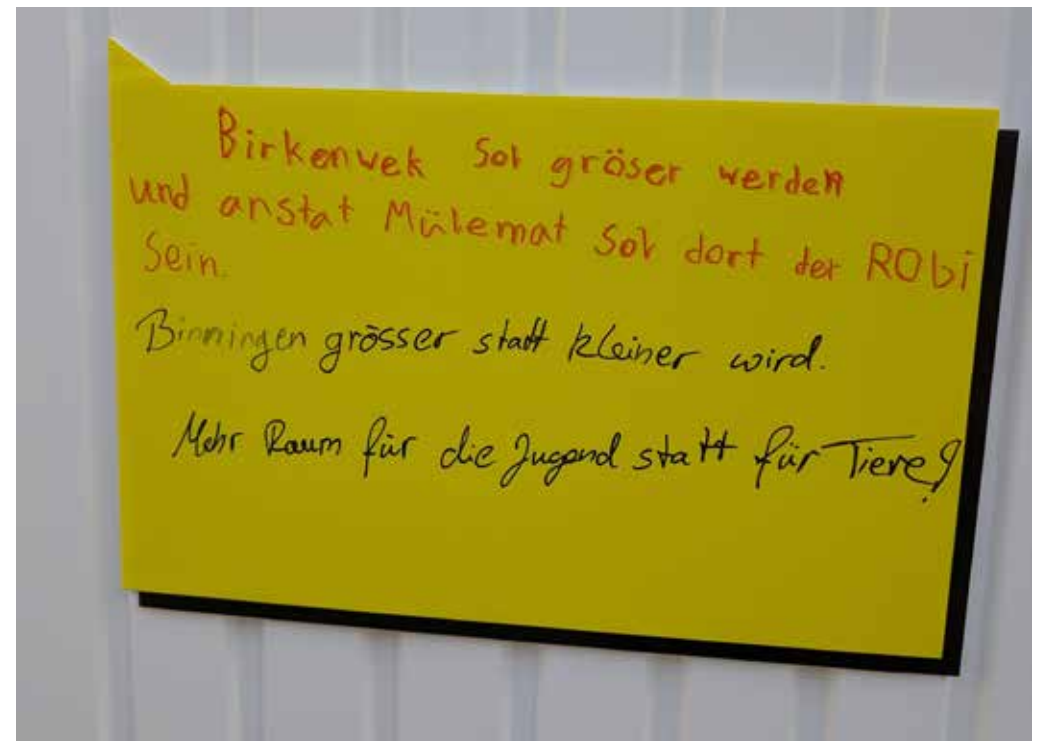 Birkenwek Sol gröser werden
und anstat Mülemat Sol dort der RObi
Sein.
Binningen grösser statt kleiner wird.
Mehr Raum für die Jugend statt für Tiere!